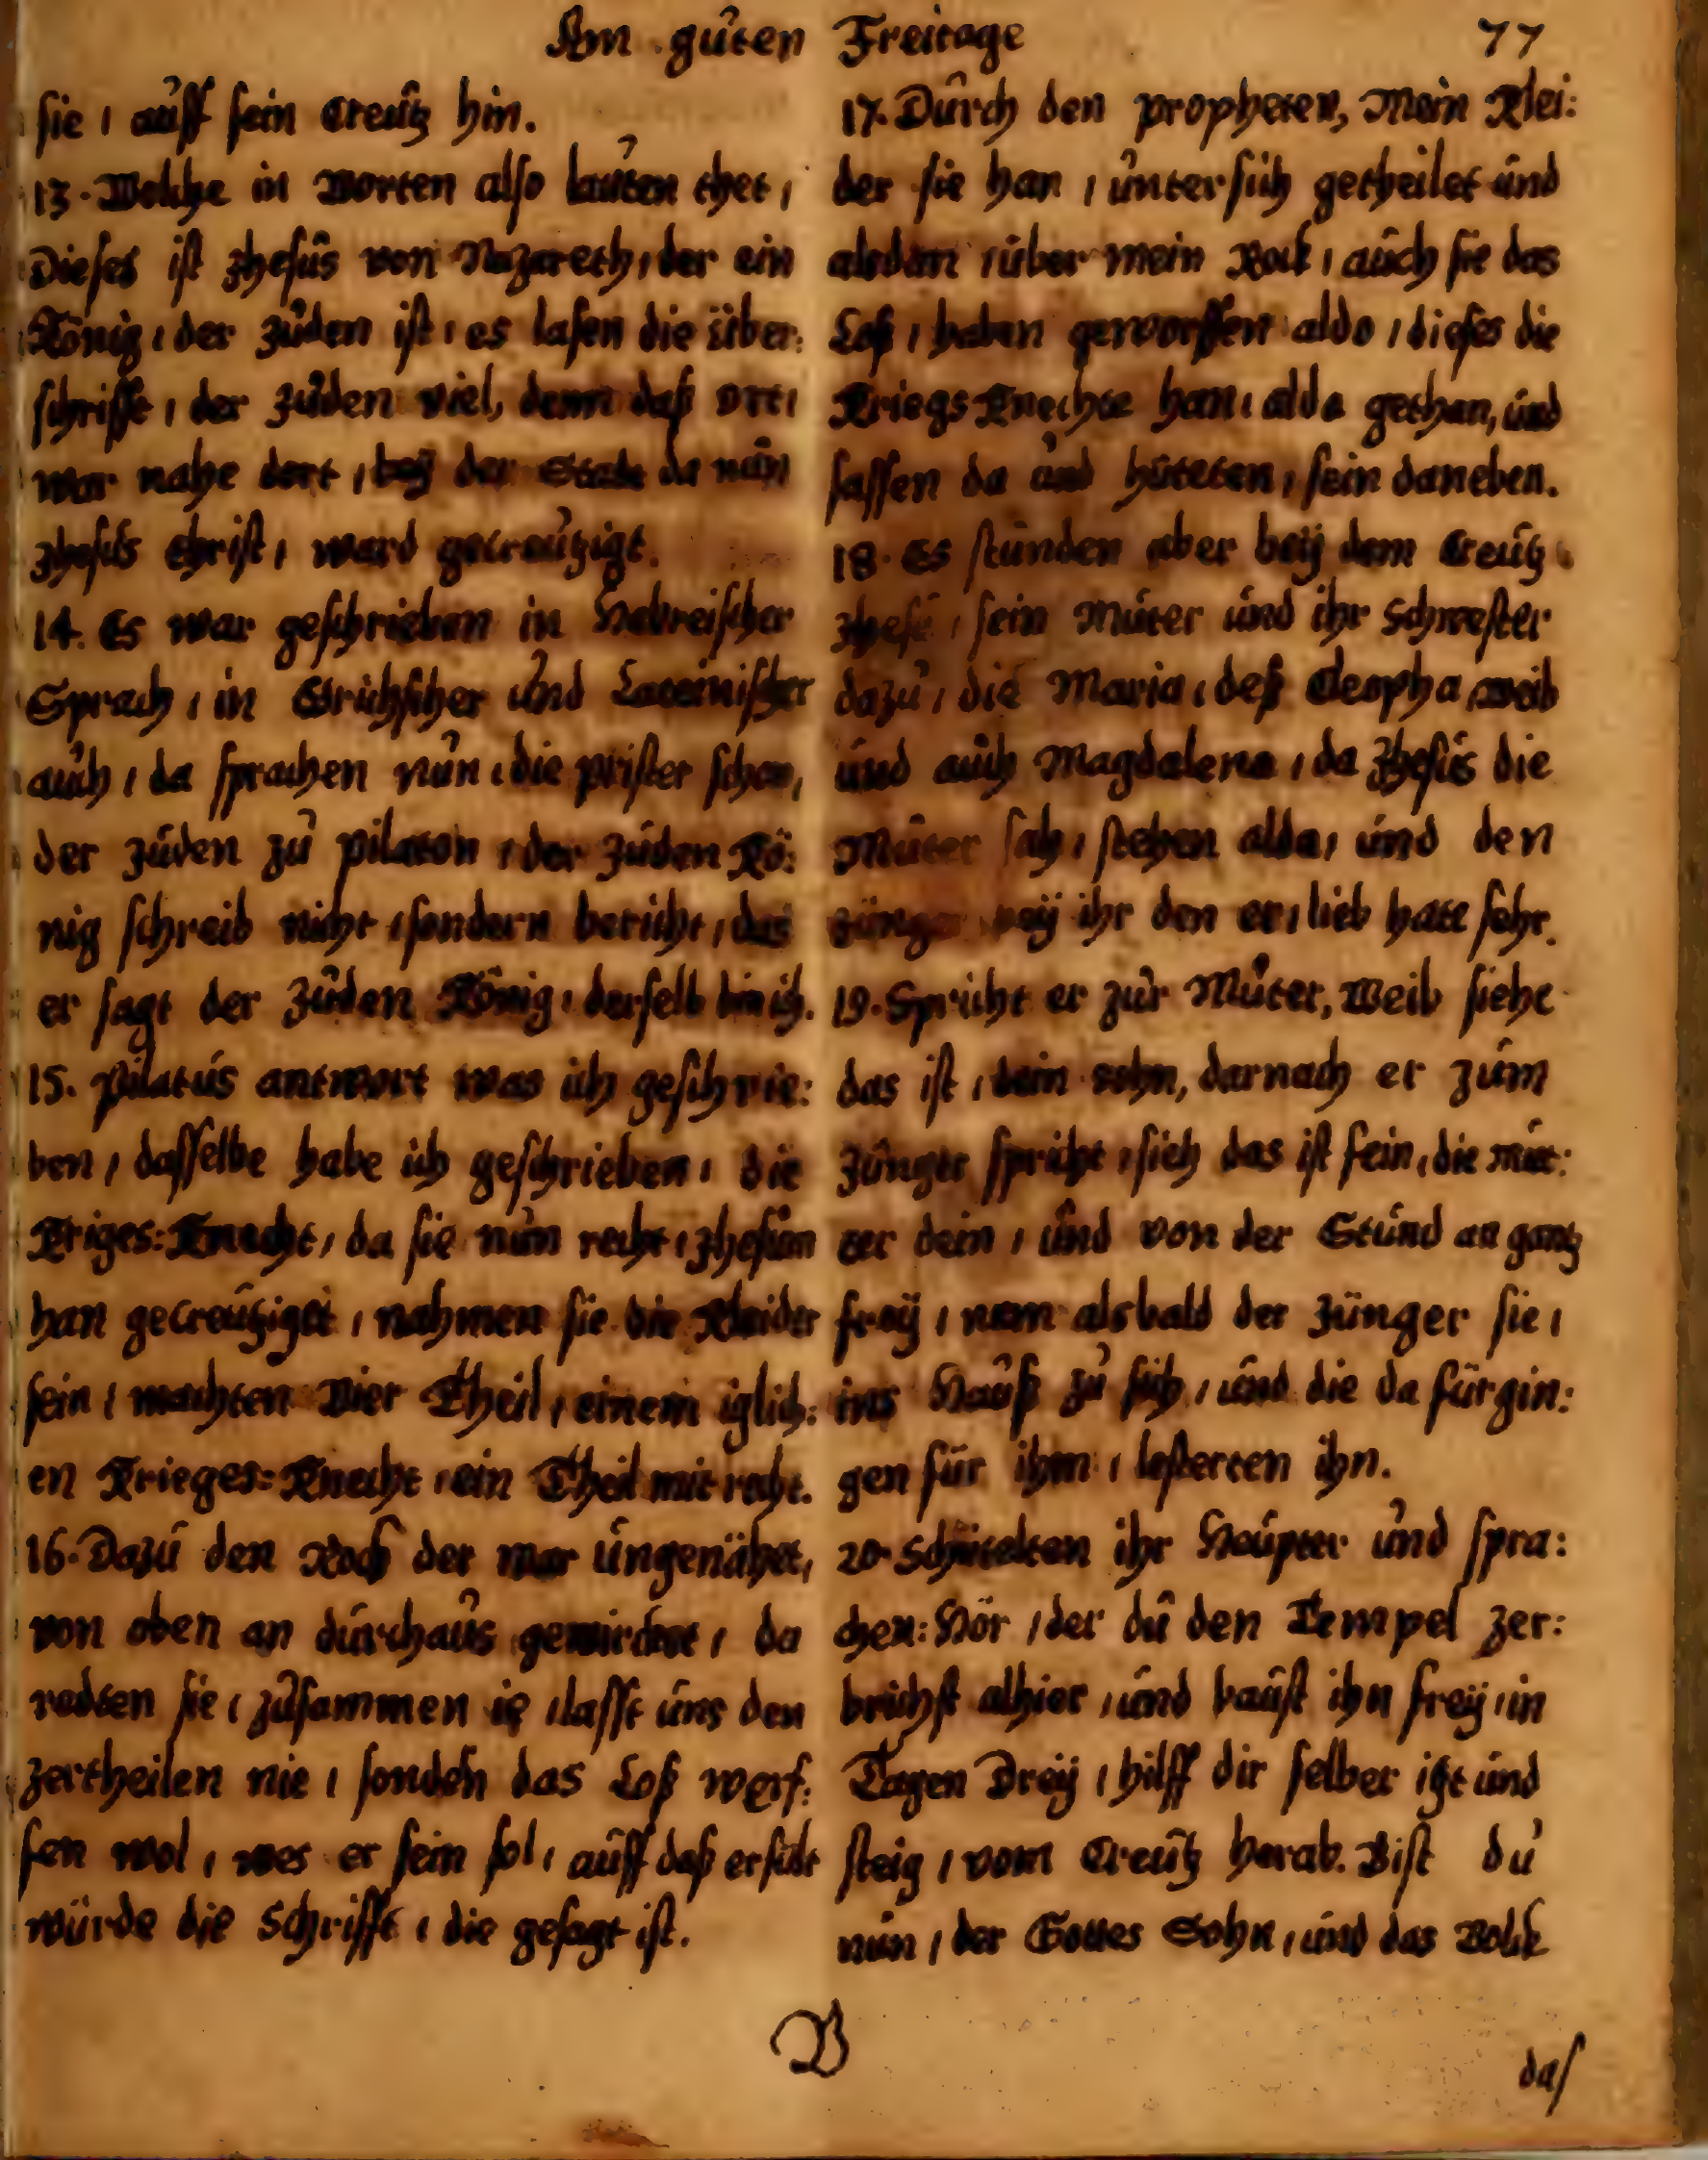 Am guten Freitage 77
sie / auff sein Creutz hin.
13. Welche in Worten also lauten thet /
Dieses ist Jhesus von Nazareth / der ein
König / der Juden ist / es lasen die über:
schrifft / der Juden viel, denn daß Ort /
war nahe dort / bey der Stadt da nun
Jhesus Christ / ward gecreutzigt.
14. Es war geschrieben in Hebreischer
Sprach / in Grichscher und Lateinischer
auch / da sprachen nun / die prister schon,
der Juden zu pilaton / der Juden Kö:
nig schreib nicht / sondern bericht / das
er sagt der Juden König / derselb bin ich.
15. Pilatus antwort was ich geschrie:
ben / dasselbe habe ich geschrieben / die
Kriges: Knecht / da sie nun recht / Jhesum
han gecreutziget / nahmen sie die Kleider
sein / machten Vier Theil / einem iglich:
en Krieges: Knecht / ein Theil mit recht.
16. Dazu den Rock der war ungenähet,
von oben an durchaus gewircket / da
redten sie / zusammen ie / lasst uns den
zertheilen nie / sondern das Loß werf:
fen wol / wes er sein sol / auff daß erfült
würde die Schrifft / die gesagt ist.
17. Durch den propheten, Mein Klei:
der sie han / unter sich getheilet und
alsdan / über mein Rock / auch sie das
Loß / haben geworffen aldo / dieses die
Kriegs Knechte han / alda gethan, und
sassen da und hüteten / sein daneben.
18. Es stunden aber bey dem Creutz
Jhesu / sein Muter und ihr Schwester
dazu / die Maria / deß Cleopha / weib
und auch Magdalena / da Jhesus die
Muter sah / stehen alda / und den
Jünger bey ihr den er / lieb hatt sehr.
19. Spricht er zur Muter, Weib siehe
das ist / dein sohn, darnach er zum
Jünger spricht / sieh das ist fein / die mut:
ter dein / und von der Stund an gantz
frey / nam alsbald der Jünger sie /
ins Hauß zu sich / und die da fürgin:
gen für ihm / lesterten ihn.
20. Schütelten ihr Heupter und spra:
chen: Hör / der du den Tempel zer:
brichst alhier / und baust ihn frey / in
Tagen Drey / hilff dir selber itzt und
steig / vom Creutz herab. Bist du
nun / der Gottes Sohn / und das Volck
B
das